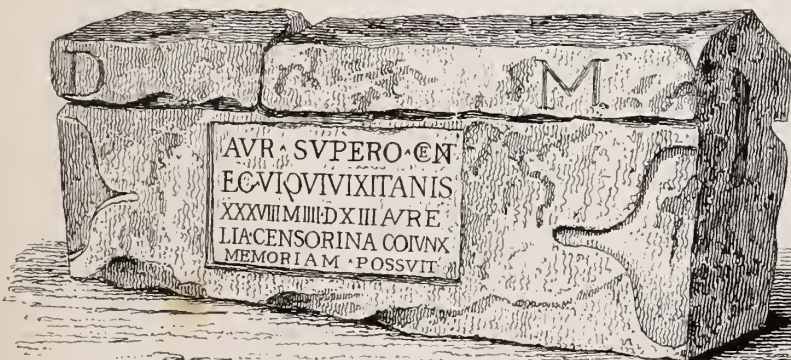 D M.
AVR · SVPERO · CENT
LEG·VI·QVIVIXITANIS
XXXVIII MIIII·DXIII AVRE
LIA·CENSORINA COIVNX
MEMORIAM · POSSVIT